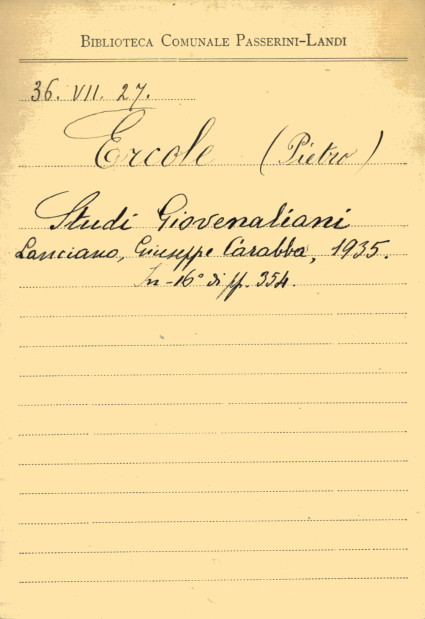 BIBLIOTECA COMUNALE PASSERINI-LANDI
36. VII. 27.
Ercole (Pietro)
Studi Giovenaliani
Lanciano, Giuseppe Carabba, 1935.
In-16° di pp. 354.